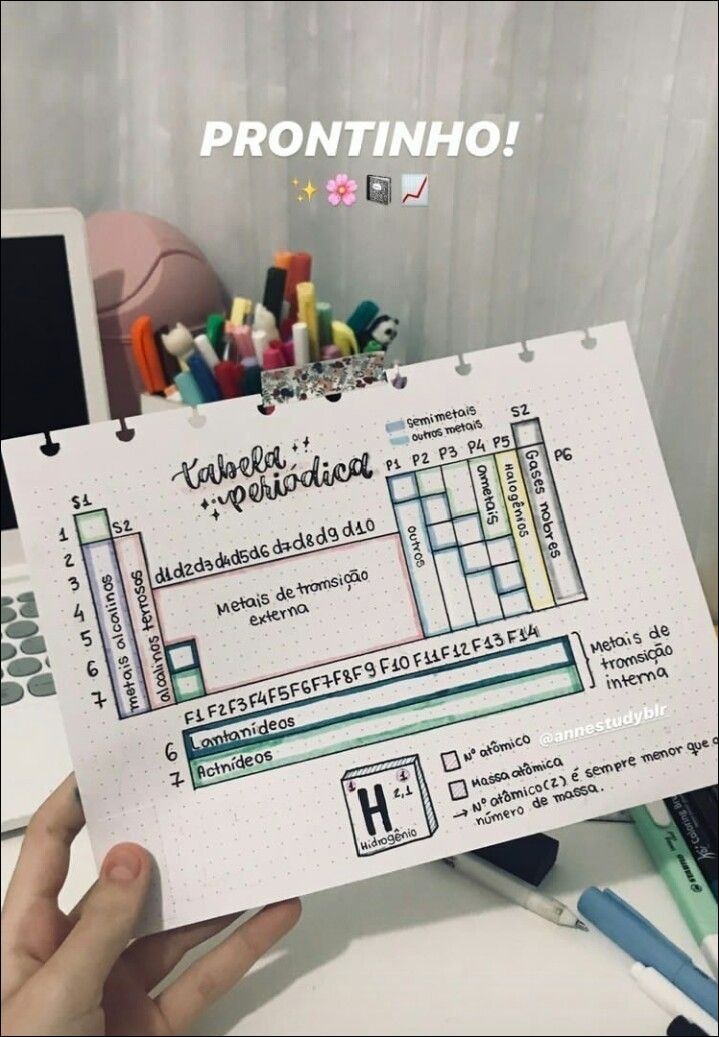 PRONTINHO!
tabela
periódica
Semimetais
outros metais
S1
S2
d1 d2 d3 d4 d5 d6 d7 d8 d9 d10
P1 P2 P3 P4 P5
S2
P6
1
2
3
4
5
6
7
metais alcalinos
alcalinos terrosos
Metais de transição
externa
outros
Ametais
Halogênios
Gases nobres
F1 F2 F3 F4 F5 F6 F7 F8 F9 F10 F11 F12 F13 F14
6 Lantanídeos
7 Actnídeos
Metais de
transição
interna
@annestudyblr
1 1
H 2,1
Hidrogênio
Nº atômico
Massa atômica
→ Nº atômico (Z) é sempre menor que o
número de massa.